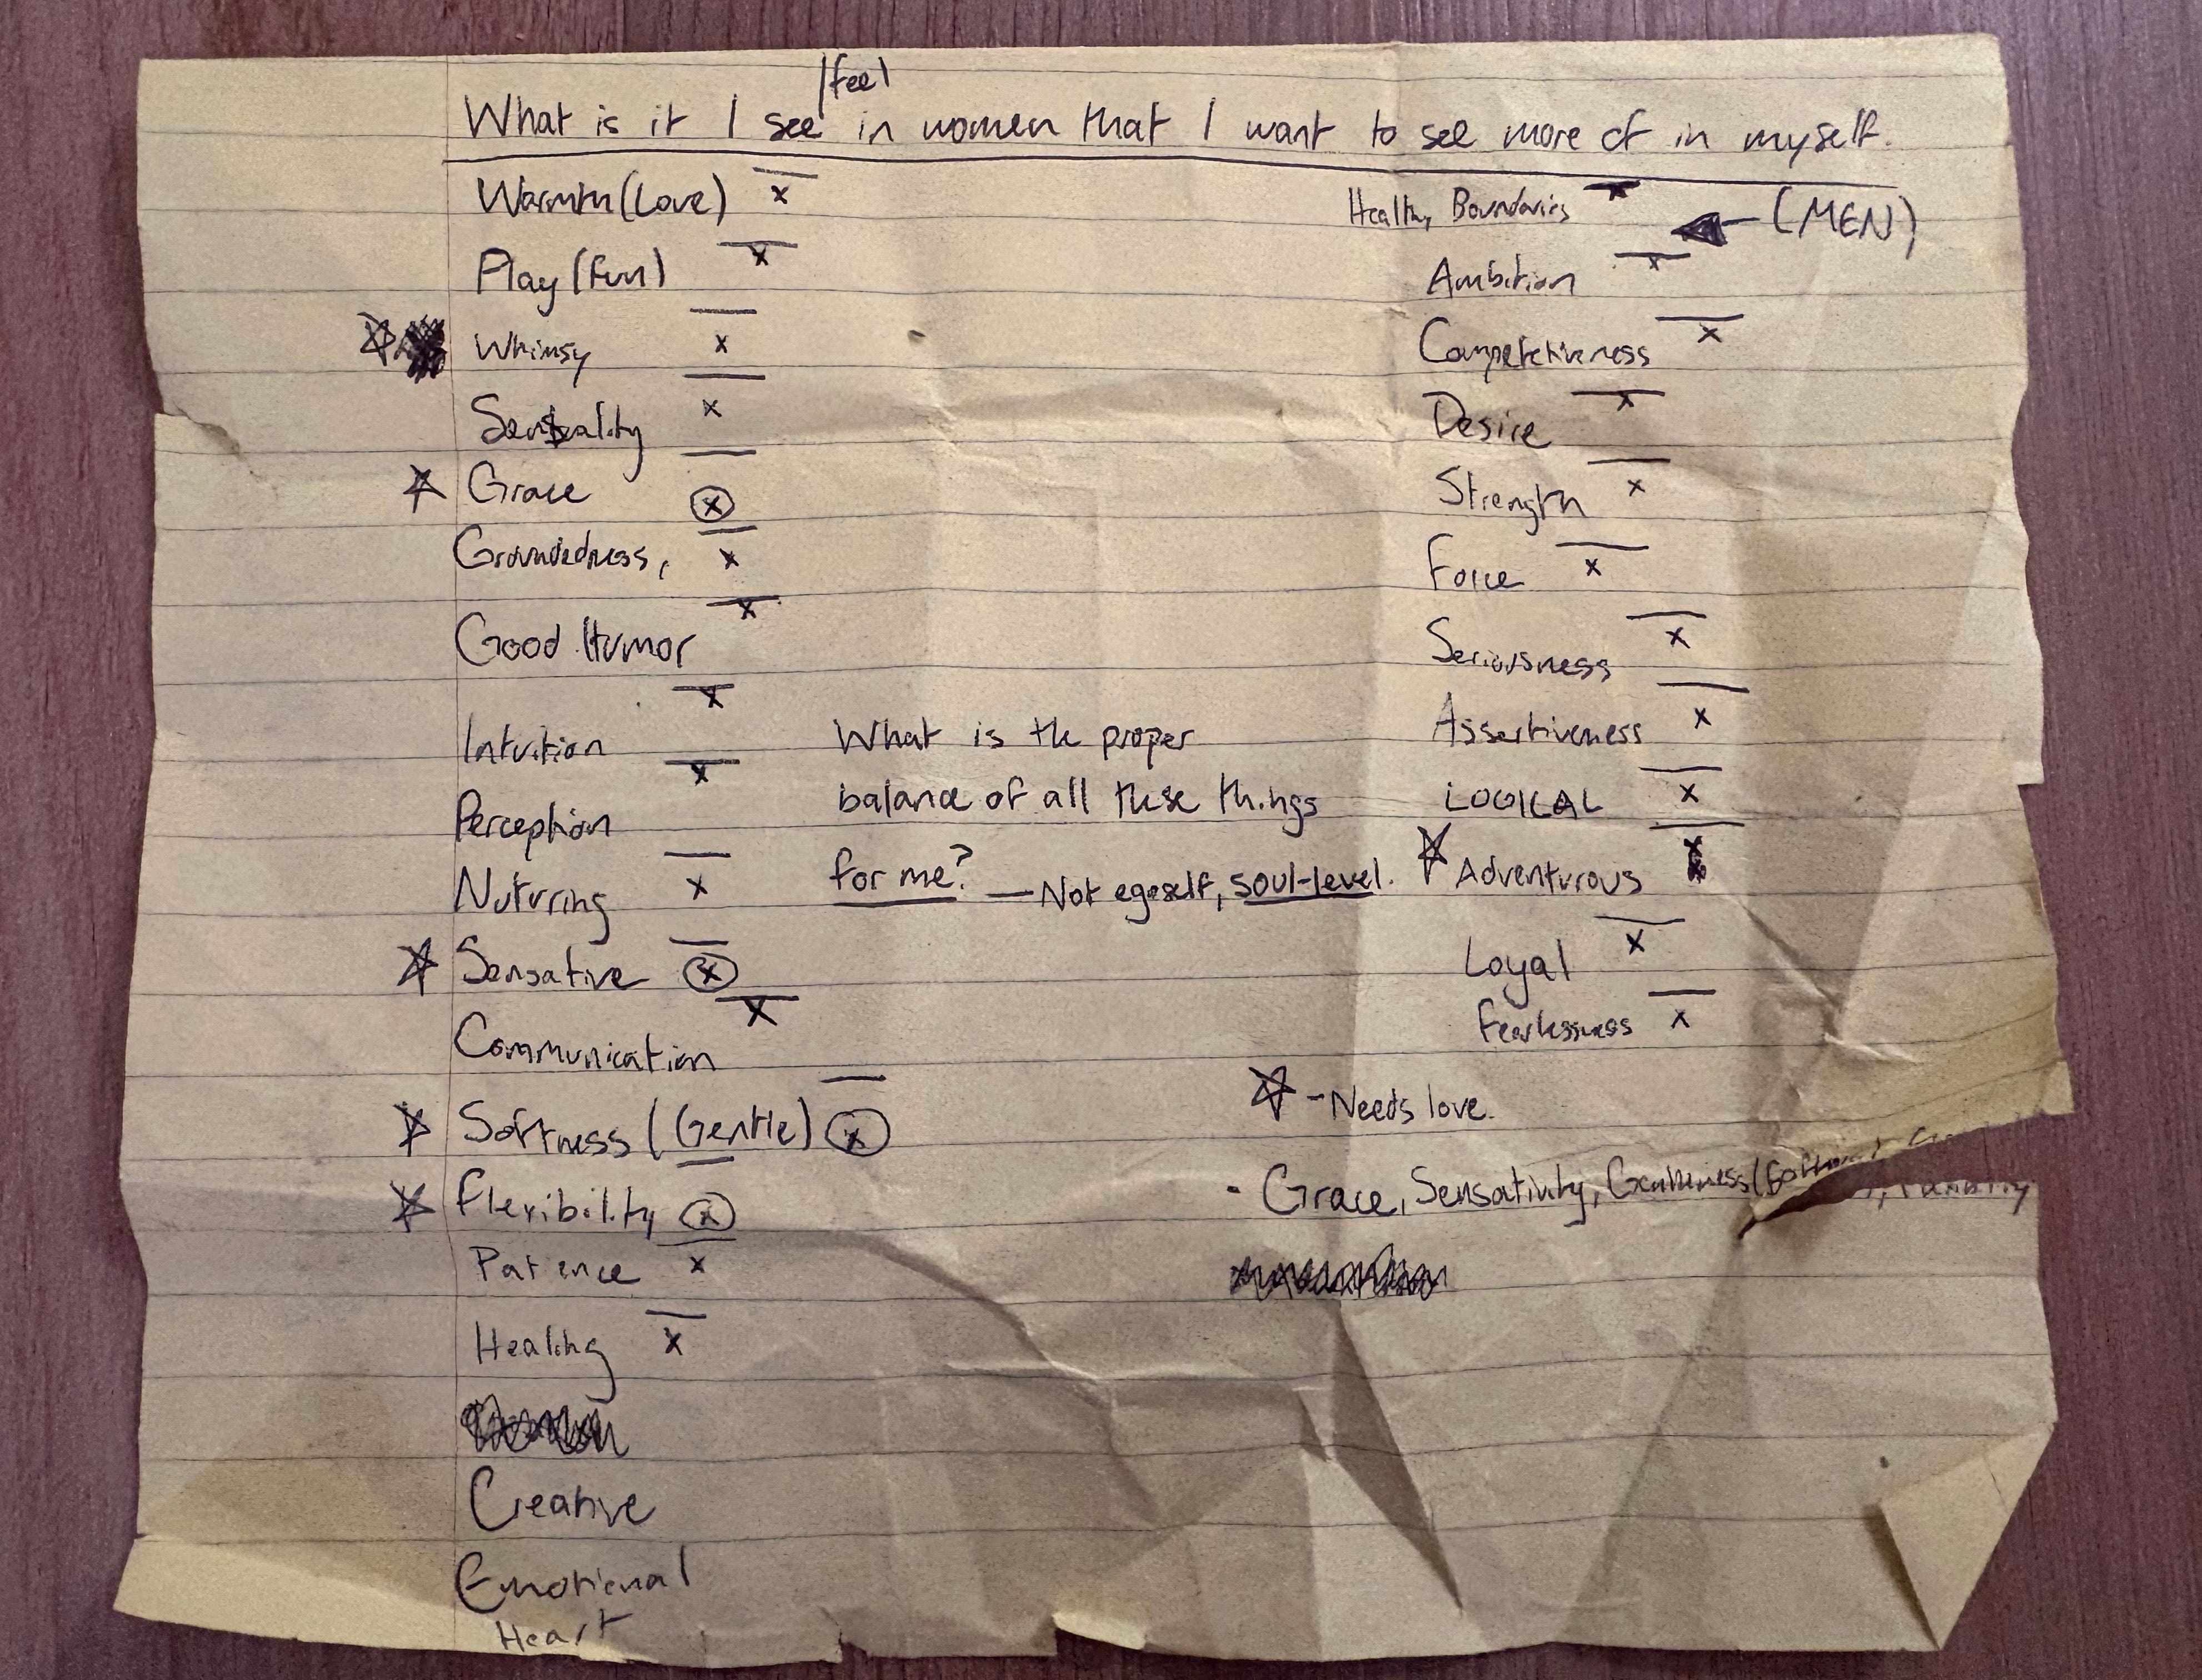 What is it I see/feel in women that I want to see more of in myself.
Warmth (Love) x
Play (fun) x
☆ Whimsy x
Sensuality x
☆ Grace ⓧ
Groundedness, x
Good Humor x
Intuition x
Perception x
Nuturring x
☆ Sensative ⓧ
Communication x
☆ Softness (Gentle) ⓧ
☆ Flexibility ⓧ
Patience x
Healing x
Creative
Emotional
Heart
What is the proper
balance of all these things
for me? — Not egoself, soul-level.
(MEN)
Healthy Boundaries x
Ambition x
Competetiveness x
Desire x
Strength x
Force x
Seriousness x
Assertiveness x
LOGICAL x
☆ Adventurous x
Loyal x
Fearlessness x
☆ - Needs love.
- Grace, Sensativity, Gentleness